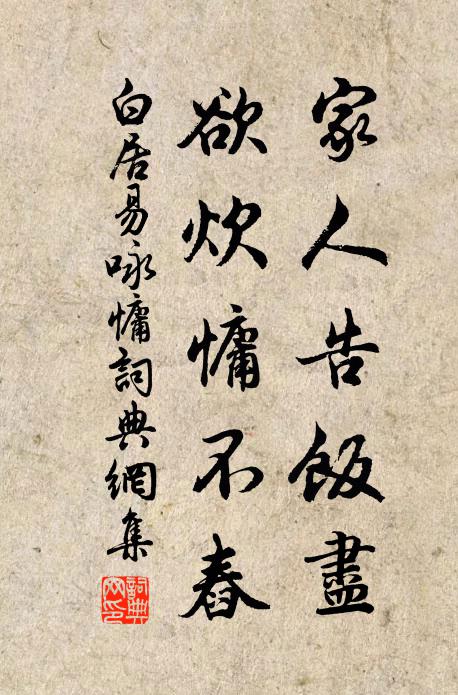 家人告飯盡
欲炊慵不舂
白居易咏慵詞典網集
詞典網印